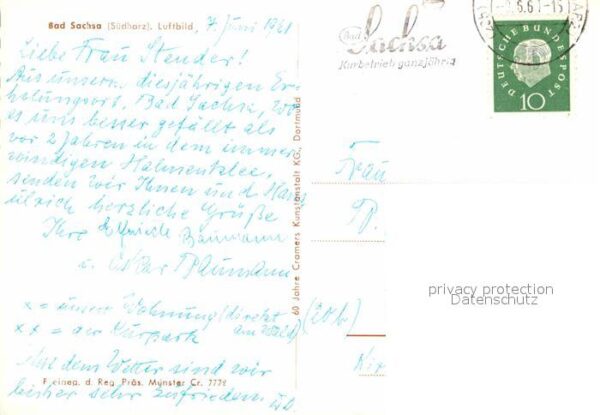 Bad Sachsa (Südharz). Luftbild
7. Juni 1961
Liebe Frau Stender!
Aus unserm diesjährigen Er-
holungsort, Bad Sachsa, wo
es uns besser gefällt als
vor 2 Jahren in dem immer
windigen Hahnenklee,
senden wir Ihnen und Hans
ulrich herzliche Grüße
Ihre Baumann
u. Oskar Baumann
x = unsere Wohnung (direkt
am Wald)
xx = der Kurpark
Mit dem Wetter sind wir
bisher sehr zufrieden.
F. eineg. d. Reg. Präs. Münster Cr. 7778
60 Jahre Cramers Kunstanstalt KG., Dortmund
Bad
Sachsa
Kurbetrieb ganzjährig
6.61-15
DEUTSCHE BUNDESPOST
10
Frau
(20b)
privacy protection
Datenschutz